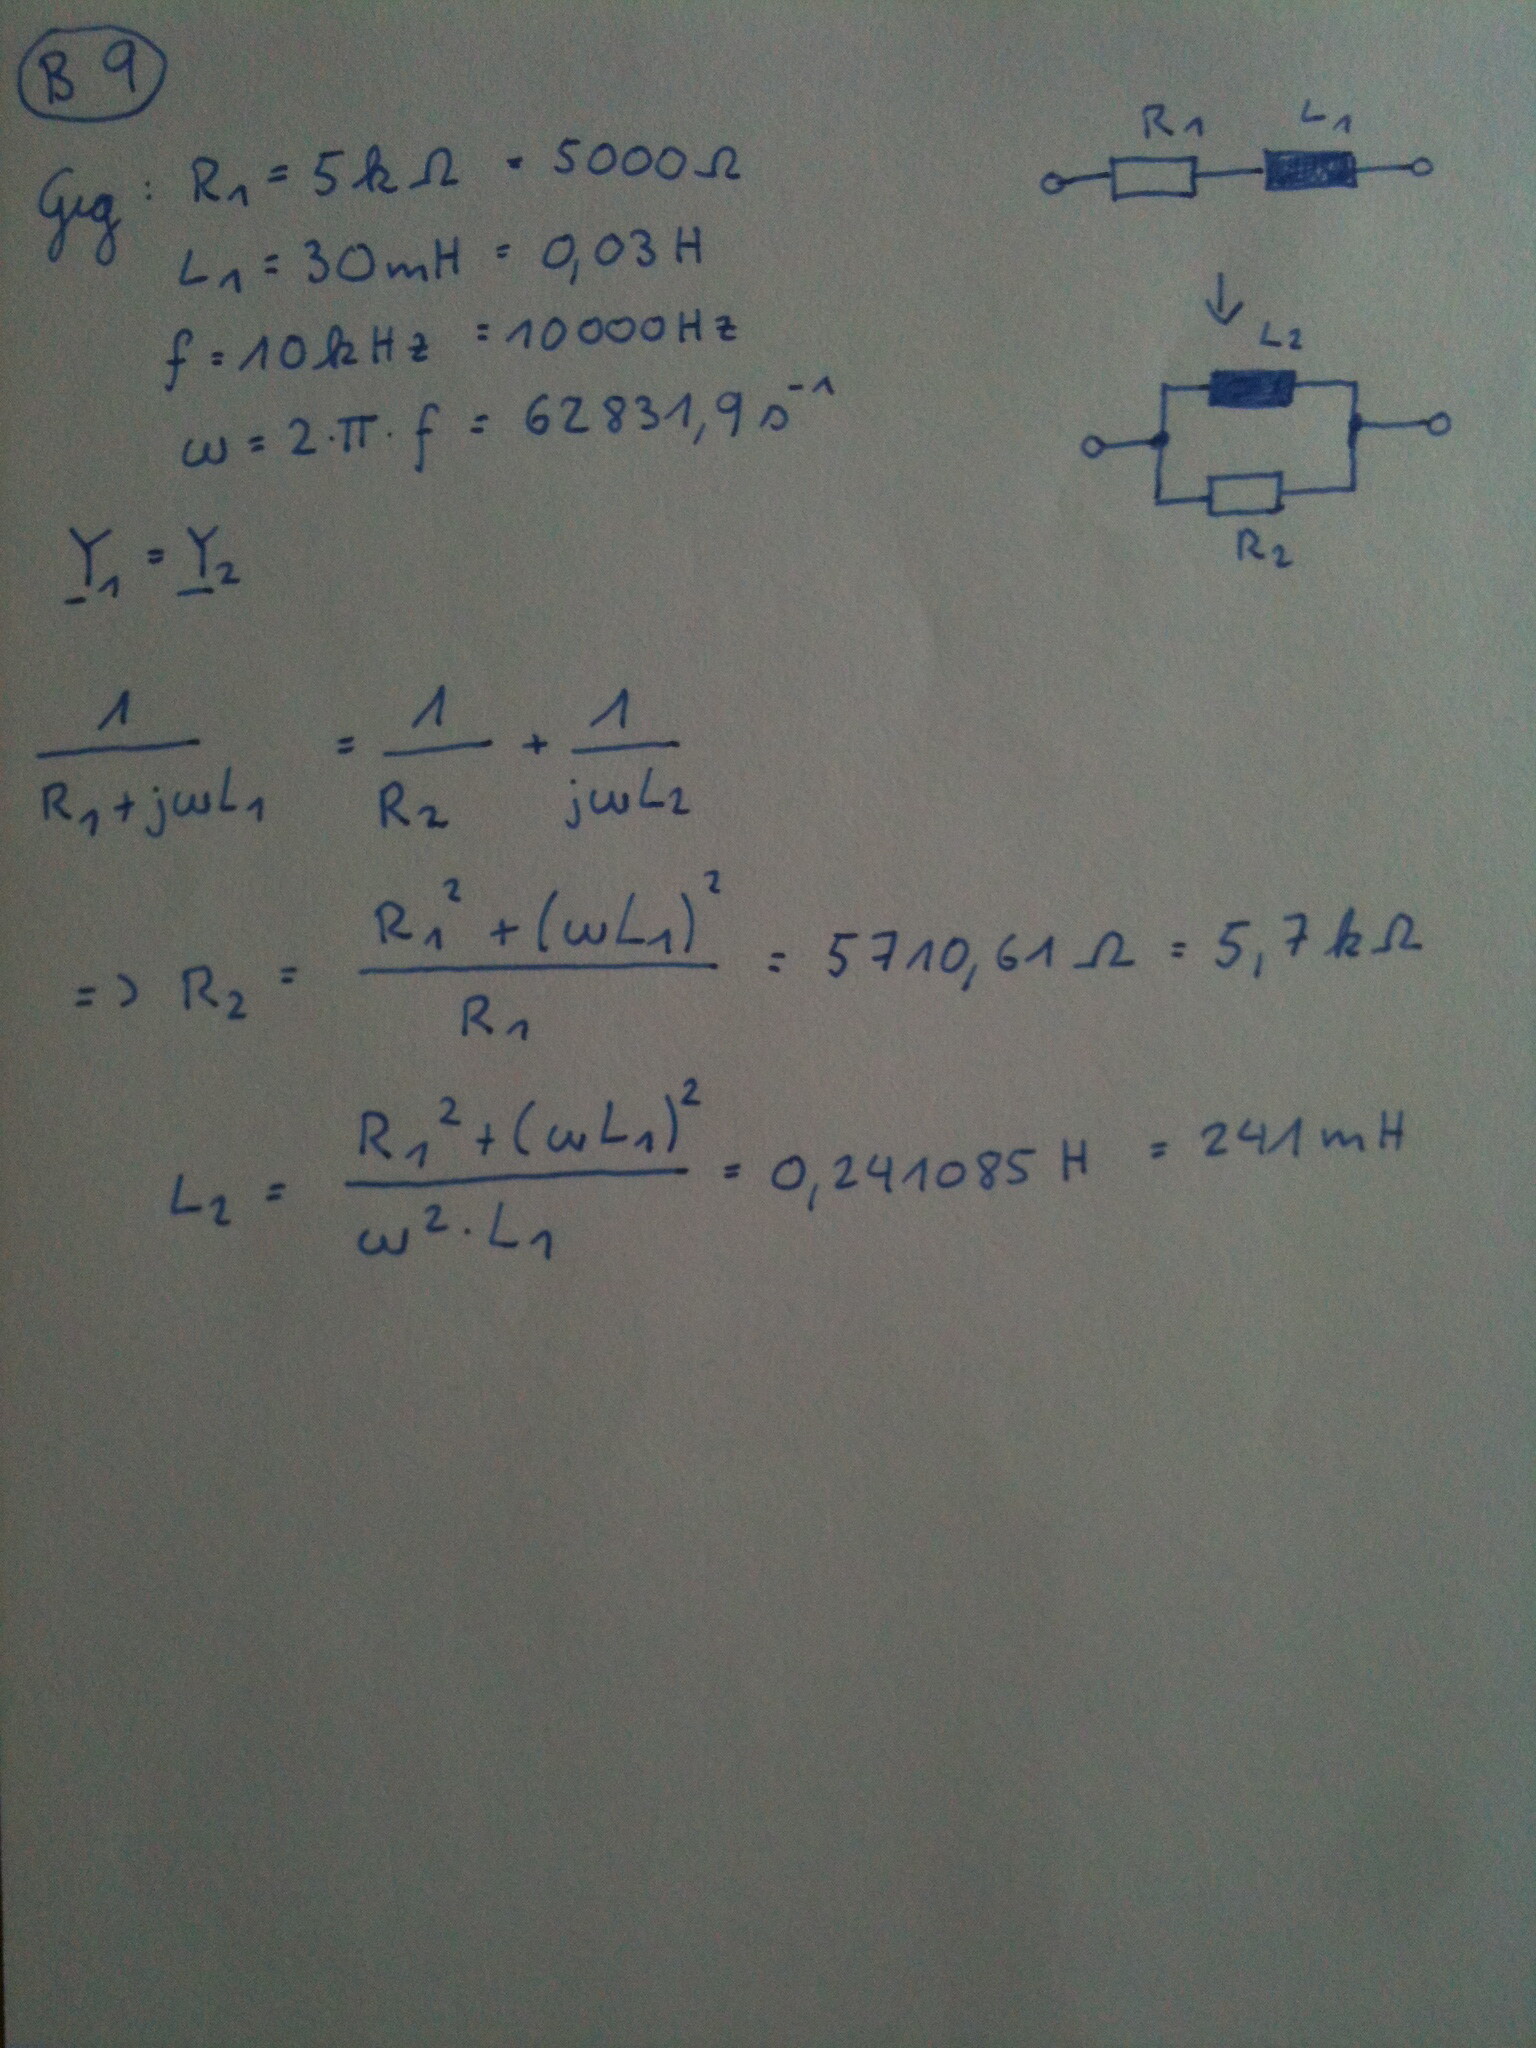 B 9
Geg: R₁ = 5kΩ = 5000Ω
L₁ = 30mH = 0,03H
f = 10kHz = 10000Hz
ω = 2·π·f = 62831,9 s⁻¹
R₁ L₁
↓
L₂
R₂
Y₁ = Y₂
1/(R₁+jωL₁) = 1/R₂ + 1/(jωL₂)
=> R₂ = (R₁² + (ωL₁)²)/R₁ = 5710,61 Ω = 5,7kΩ
L₂ = (R₁² + (ωL₁)²)/(ω²·L₁) = 0,241085 H = 241mH